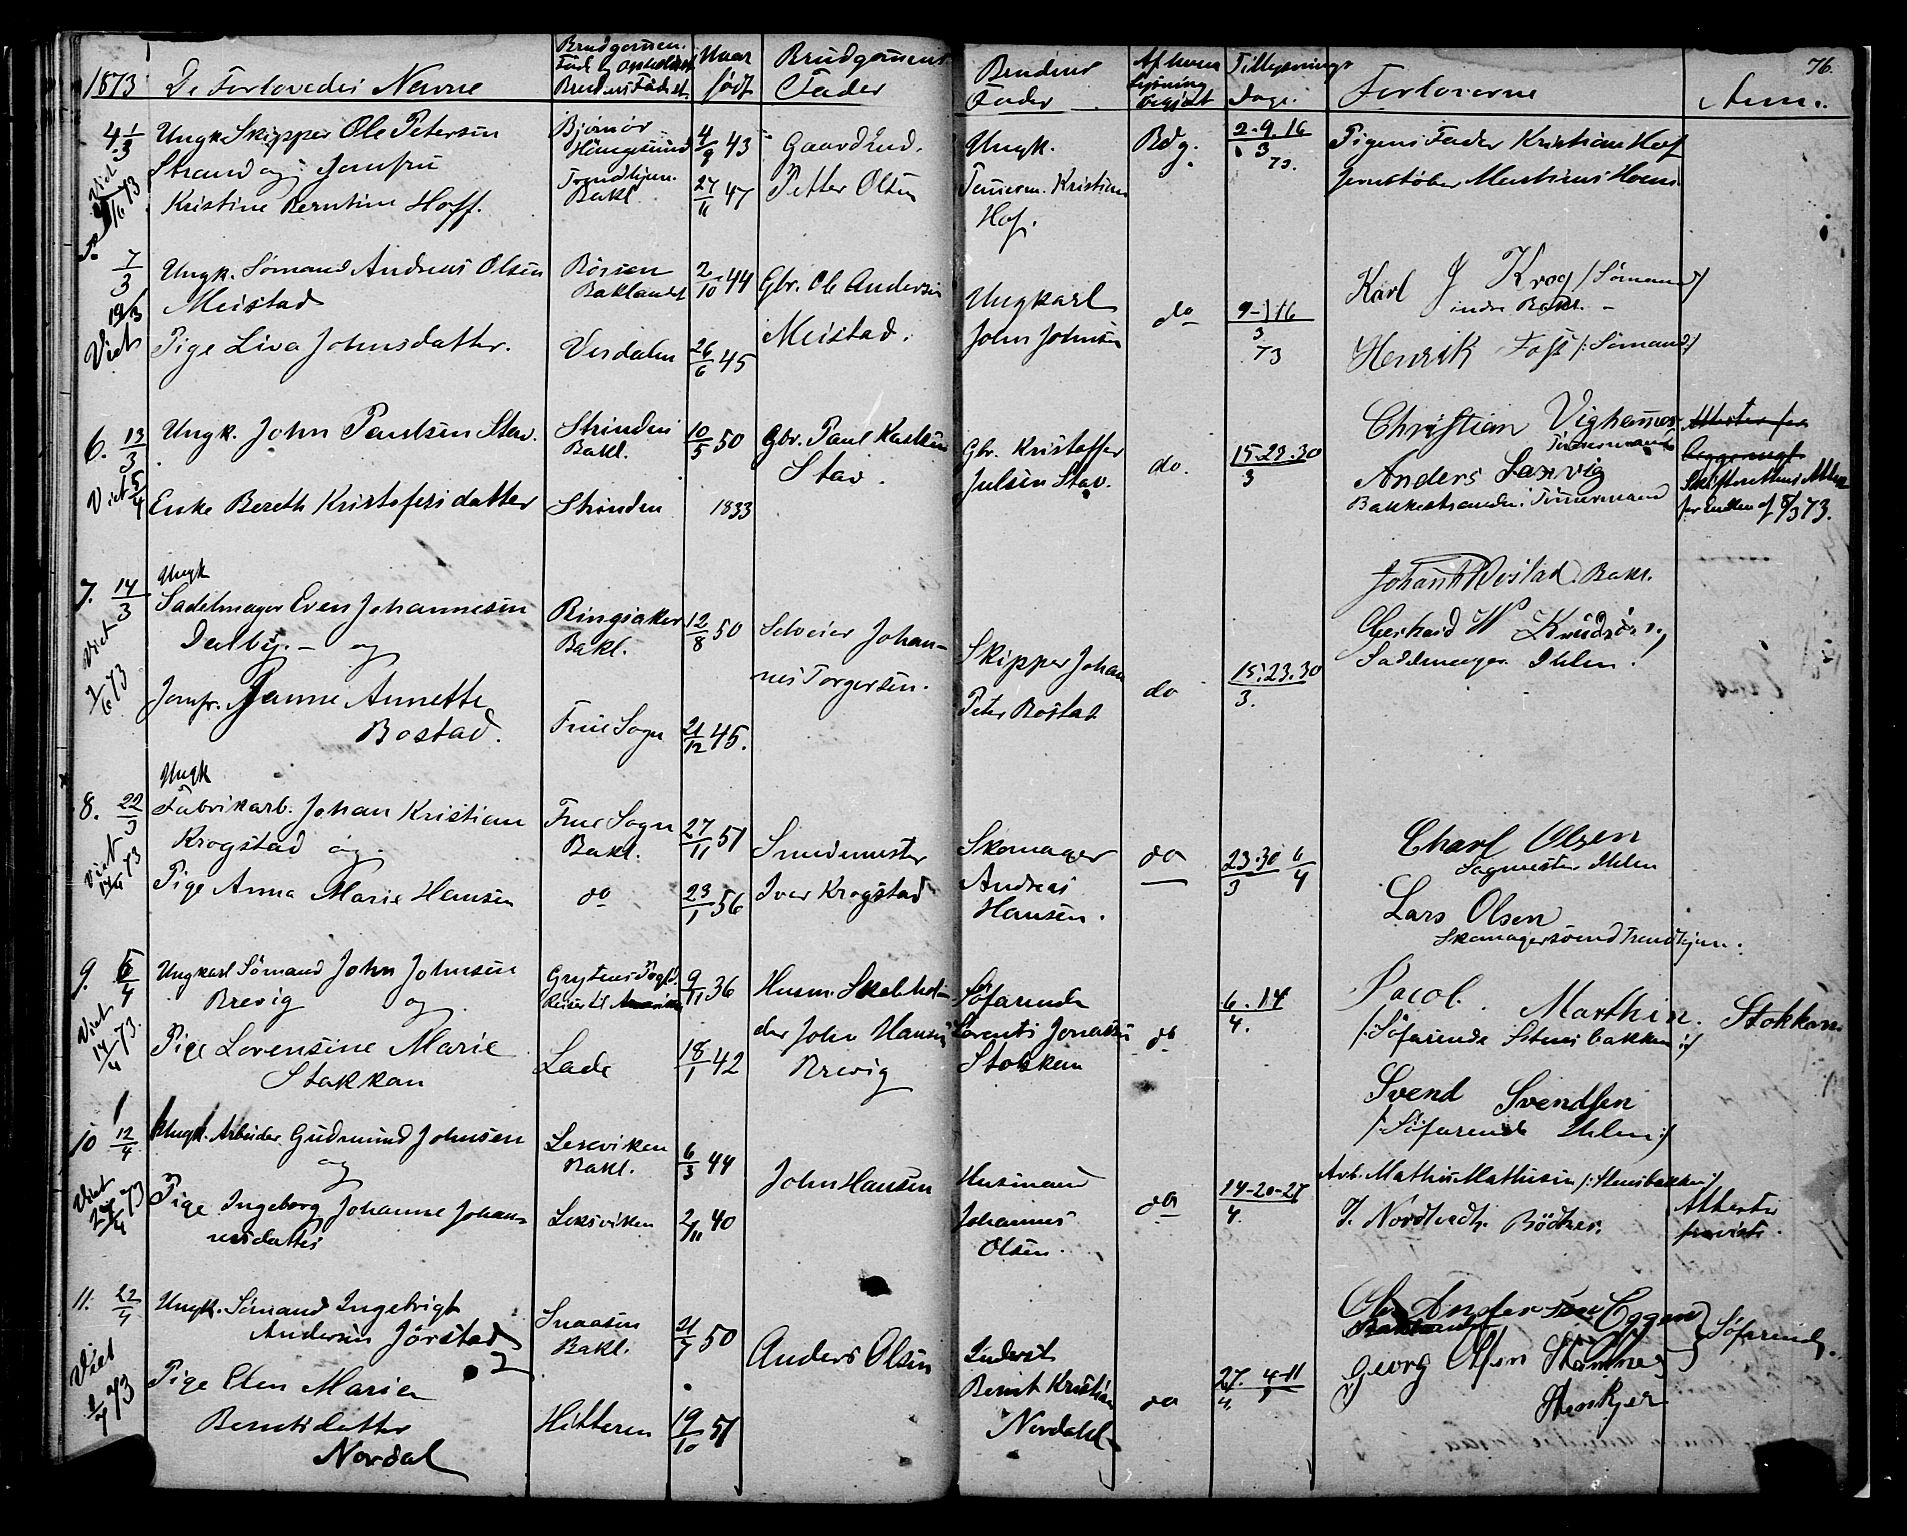 1873 De Forlovedes Navne Brudgommen. Naar født Brudgomens Fader
Brudens Fader Af hvem Lysning begjært Tillysnings Dage. Forloverne Anm. 76.
4. 1/3 Ungk. Skipper Ole Petersen Bjørnør 4/9 43 Gaardbrd. Ungk. Bdg. 2-9.16 Pigens Fader Kristian Hof
Strand og: Jomfru Trondhjem. 27/11 47 Petter Olsen Tømerm. Kristian 3 73.
Kristine Berntine Hoff. Bakl. Hof.
7/3 Ungk. Sømand Andreas Olsen Børsen 2/10 44 Gbr. Ole Andersen Ungkarl do 9-16 Karl J Krog /Sømand/
Meistad Baklandet Meistad. John Johnsen 3 indre Bakl.
19/3 Viet Pige Liva Johnsdatter. Verdalen 26/6 45 73 Henrik Fost /:Sømand:/
6. 13/3 Ungk. John Paulsen Stav. Strinden 10/5 50 Gbr. Paul Gbr. Kristoffer do. 15-23.30 Christian Vighammer
Bakl. Stav. Julsen Stav. 3 Tømmermand
Viet 5/4 Enke Bereth Kristofersdatter Strinden 1833 Anders Laxvig
Bakkestranden. Tømmermand
for Enken af 8/3 73.
7. 14/3 Ungk
Sadelmager Even Johannesen Ringsaker 12/8 50 Selveier Johan- Skipper Johan do 15.23.30 Bakl.
Dalby. og Bakl. nes Torgersen. Peter Bostad 3. Gerhard W Knudsen
Viet 7/6 73 Jomfr. Janne Annette Frue Sogn 21/12 45. Sadelmager Ihlen.
Bostad.
8. 22/3 Ungk
Fabrikarb. Johan Kristian Frue Sogn 27/11 51 Smedmester Skomager do 23.30 6 Charl Olsen
Krogstad og. Bakl. Iver Krogstad Andreas 3 4 Sagmester Ihlen
Viet 14/4 73 Pige Anna Marie Hansen do 23/1 56 Hansen. Lars Olsen
Skomagersvend Trondhjem.
9. 6/4 Ungkarl Sømand John Johnsen Grytens 9/11 36 Husm. Søfarende do 6.14 Jacob. Marthin. Stokkan
Brevig og John Hansen Lorents Jonassen 4. /:Søfarende Stensbakken:/
Viet 14/4 73. Pige Lorensine Marie Lade 18/1 42 Brevig Stokkan Svend Svendsen
Stokkan /:Søfarende Ihlen:/
10 12/4 Ungk. Arbeider Gudmund Johnsen Lexviken 6/3 44 John Hansen Husmand do 14-20-27 Arb. Mathis Mathisen /:Stensbakken:/
og Bakl. Johannes 4. J. Nordtvedt. Bödker. Attester
Viet 27/4 73 Pige Ingeborg Johanne Johan Leksviken 2/11 40 Olsen.
nesdatter
11. 22/4 Ungk. Sømand Ingebrigt Snaasen 21/7 50 Anders Olsen Inderst do 27. 4-11 Ole Andersen Eggen
Andersen Jörstad Bakl. Bernt Kristian 4. Georg Olsen Søfarende.
Viet 73 Pige Elen Marie Hitteren 19/10 51 Nordahl Stenkjer
Berntsdatter
Nordal